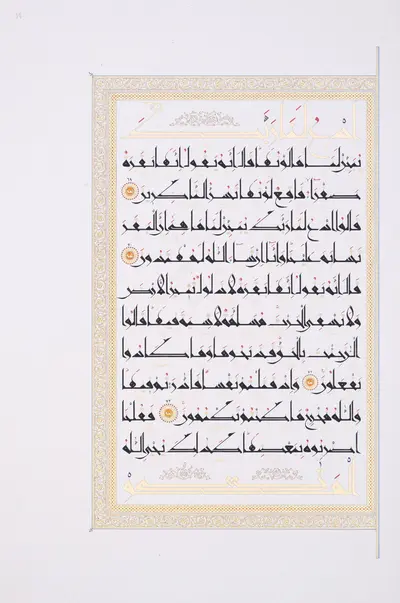 يبين لنا ما لونها قال إنه يقول إنها بقرة
صفراء فاقع لونها تسر الناظرين
قالوا ادع لنا ربك يبين لنا ما هي إن البقر
تشابه علينا وإنا إن شاء الله لمهتدون
قال إنه يقول إنها بقرة لا ذلول تثير الأرض
ولا تسقي الحرث مسلمة لا شية فيها قالوا
الآن جئت بالحق فذبحوها وما كادوا
يفعلون وإذ قتلتم نفسا فادارأتم فيها
والله مخرج ما كنتم تكتمون فقلنا
اضربوه ببعضها كذلك يحي الله